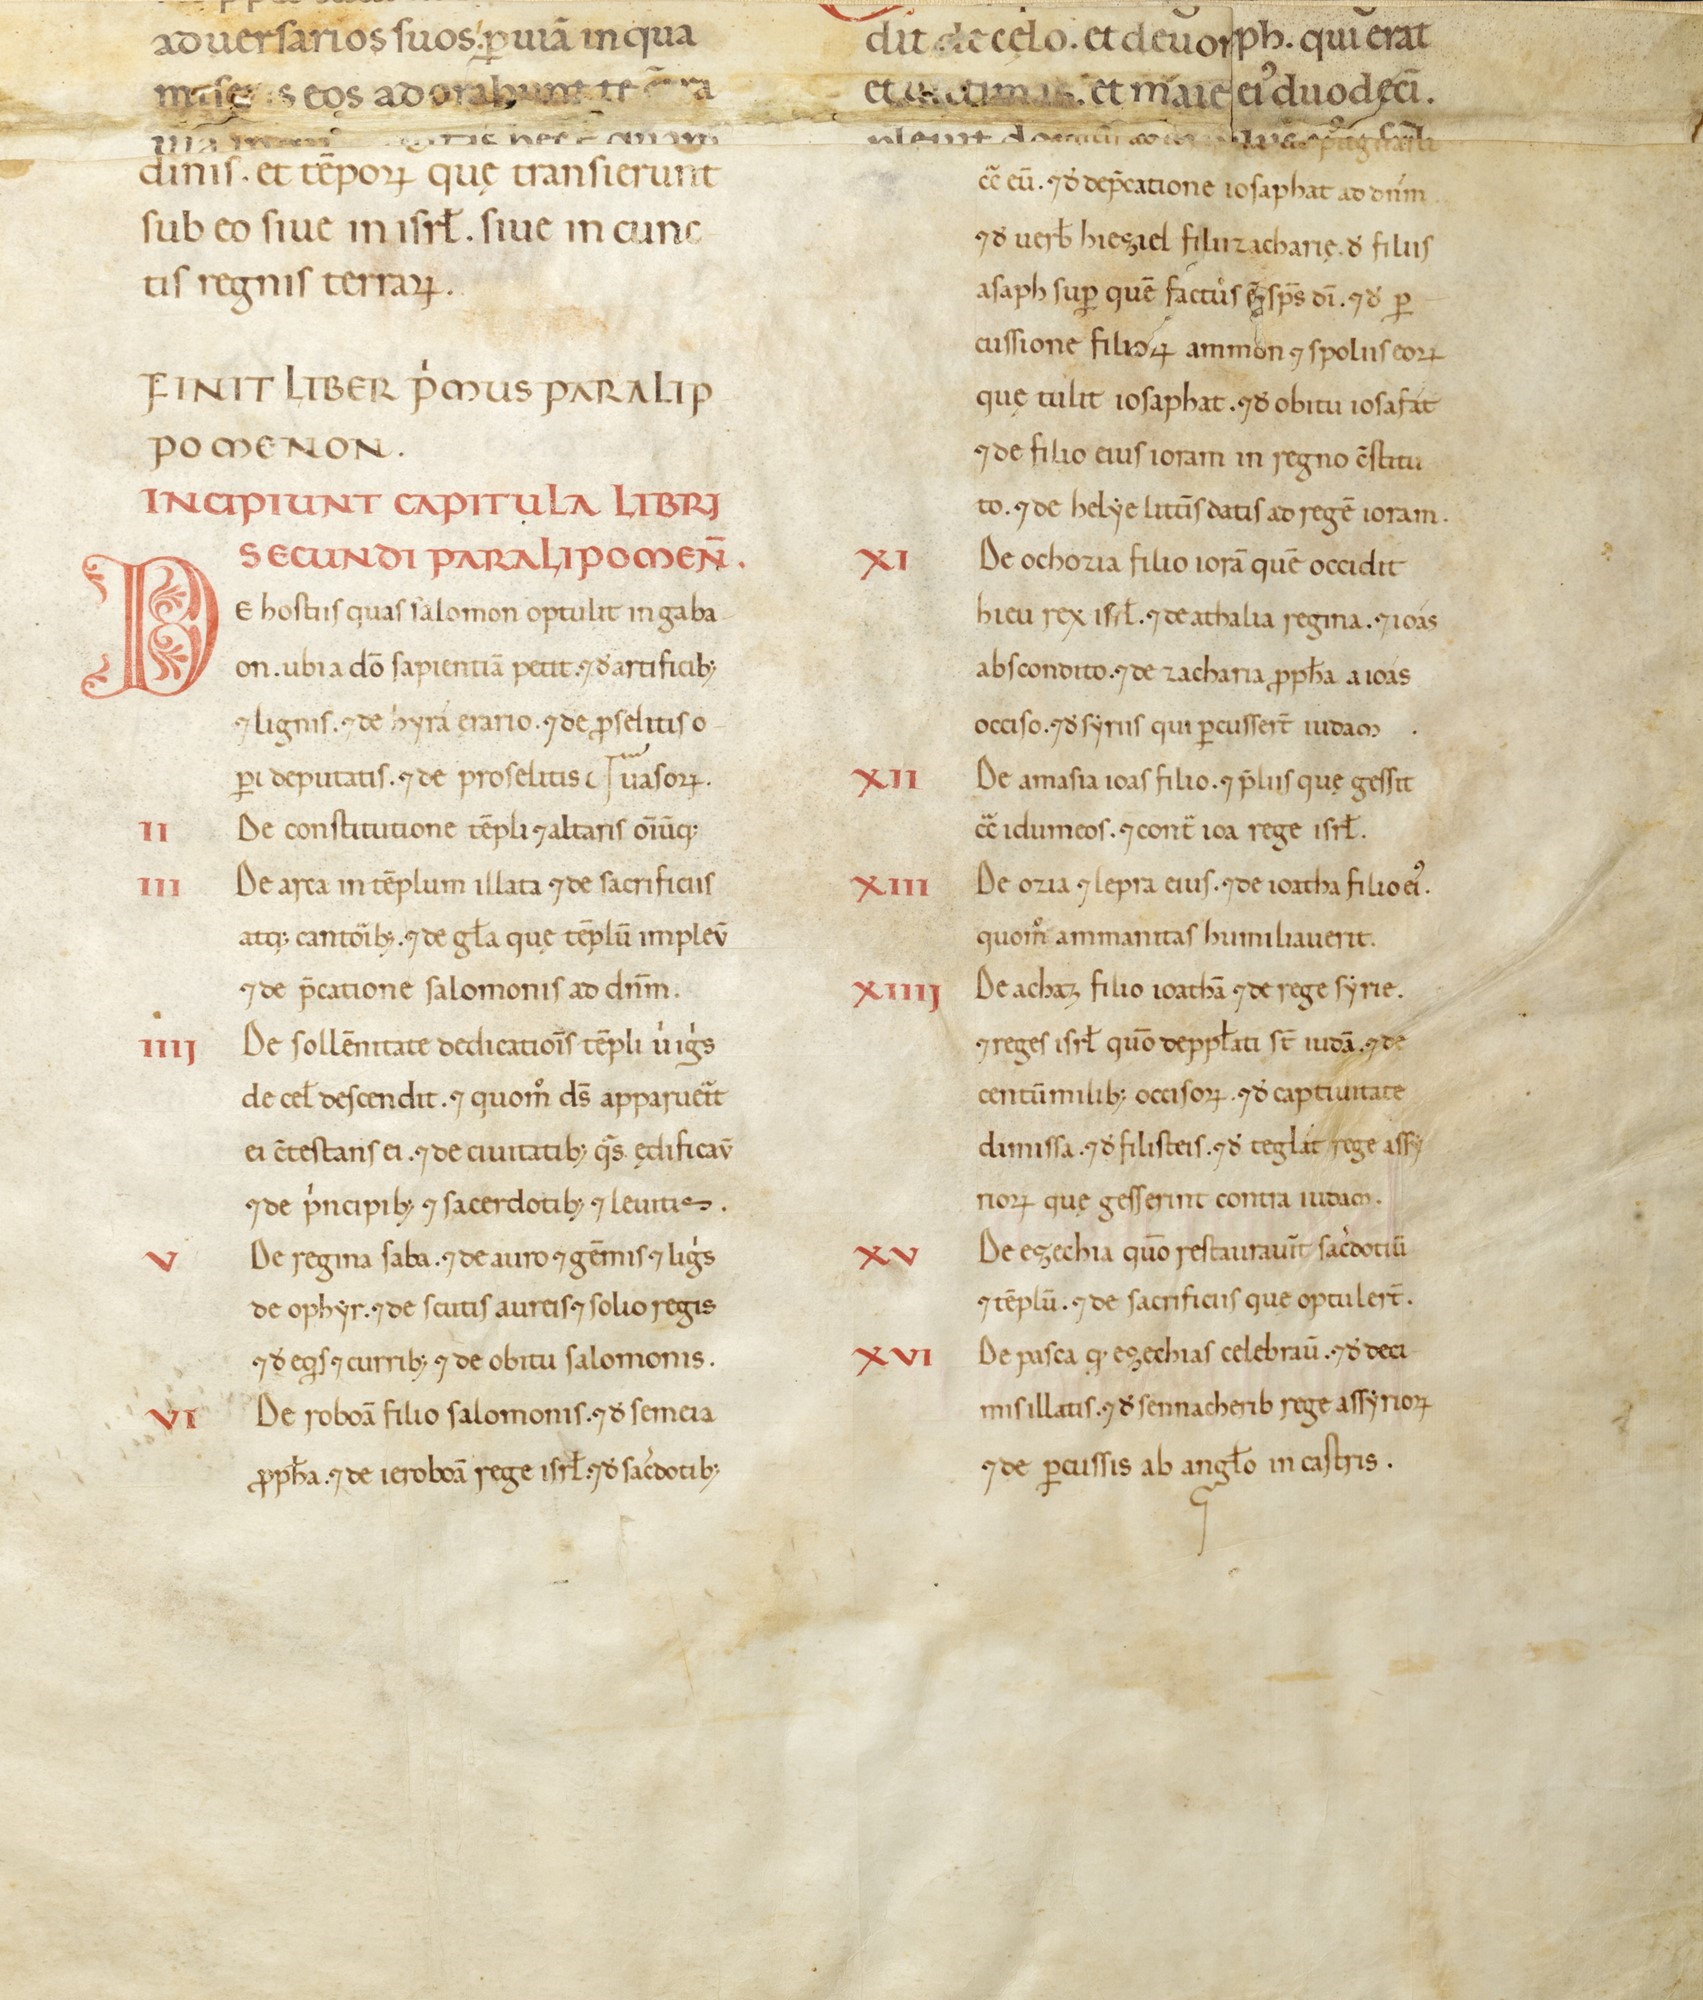 aduersarios suos. ꝑ uiā in qua
eos adorabunt te
dinis. et tēporꝝ quę transierunt
sub eo siue in isrł. siue in cunc
tis regnis terrarꝝ.
FINIT LIBER P̍MUS PARALIP
POMENON.
INCIPIUNT CAPITULA LIBRI
SECUNDI PARALIPOMEN̄.
DE hostiis quas salomon optulit in gaba
on. ubi a dō sapientiā petit. ⁊ đ artificib;
⁊ lignis. ⁊ de hyrā erario. ⁊ de ꝓselitis o
ꝑi deputatis. ⁊ de proselitis uasorꝝ.
II De constitutione tēpli ⁊ altaris oīūq;
III De arca in tēplum illata ⁊ de sacrificiis
atq; cantoīb;. ⁊ de gła quę tēplū impleū
⁊ de p̄catione salomonis ad dn̄m.
IIIJ De sollēnitate dedicatiōis tēpli u̍ ig̍s
de ceł descendit. ⁊ quom̊ ds̄ apparuer̄t
ei c̄testans ei. ⁊ de ciuitatib; q̄s ędificaū
⁊ de p̍ncipib; ⁊ sacerdotib; ⁊ leuitis.
V De regina saba. ⁊ de auro ⁊ gēmis ⁊ lig̍s
de ophyr. ⁊ de scutis aureis ⁊ solio regis
⁊ đ eq̍s ⁊ currib; ⁊ de obitu salomonis.
VI De roboā filio salomonis. ⁊ đ semeia
ꝓpħa. ⁊ de ieroboā rege isrł. ⁊ đ sac̍dotib;
dit de cęlo. et deuor ph. qui erat
et et maie ei᾿ duodeci.
c̄c̄ eū. ⁊ đ dep̄catione iosaphat ad dn̄m
⁊ đ uerb̄ hieziel filii zacharię. đ filiis
asaph suꝑ quē factus ē sps̄ dī. ⁊ đ ꝑ
cussione filiorꝝ ammon ⁊ spoliis eorꝝ
quę tulit iosaphat. ⁊ đ obitu iosafat
⁊ de filio eius ioram in regno c̄stitu
to. ⁊ de helye litt̄is datis ad regē ioram.
XI De ochozia filio iorā quē occidit
hieu rex isrł. ⁊ de athalia regina. ⁊ ioas
abscondito. ⁊ de zacharia ꝓpħa a ioas
occiso. ⁊ đ syriis qui ꝑcusser̄t iudam.
XII De amasia ioas filio. ⁊ p̄liis quę gessit
c̄c̄ idumeos. ⁊ cont̄ ioa rege isrł.
XIII De ozia ⁊ lepra eius. ⁊ de ioatha filio ei᾿.
quom̊ ammanitas humiliauerit.
XIIIJ De achaz filio ioathā ⁊ de rege syrie.
⁊ reges isrł quō depp̄łati st̄ iudā. ⁊ de
centūmilib; occisorꝝ. ⁊ đ captiuitate
dimissa. ⁊ đ filisteis. ⁊ đ teglat rege assy
riorꝝ quę gesserint contra iudam.
XV De ezechia quō restaurauit̄ sac̍dotiū
⁊ tēplū. ⁊ de sacrificiis que optuler̄t.
XVI De pasca q; ezechias celebraū. ⁊ đ deci
mis illatis. ⁊ đ sennacherib rege assyriorꝝ
⁊ de ꝑcussis ab angło in castris.